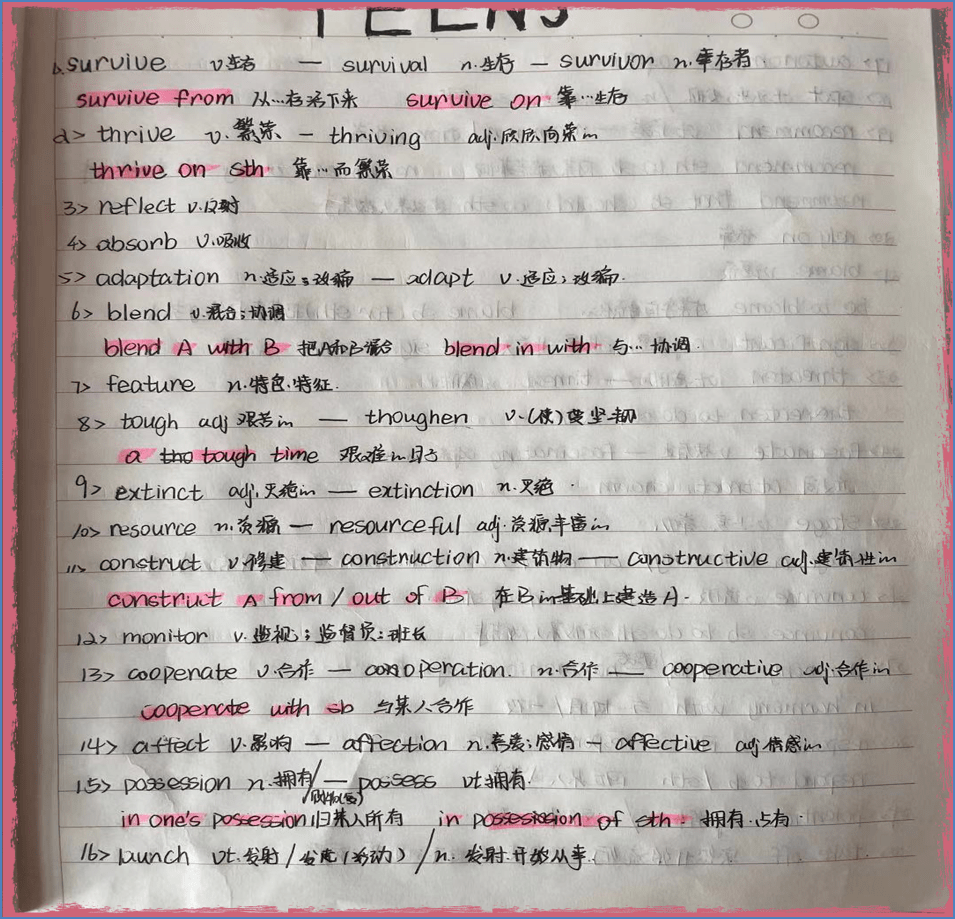 TEENS
1. survive v.生存 — survival n.生存 — survivor n.幸存者
survive from 从…存活下来 survive on 靠…生存
2> thrive v.繁荣 — thriving adj.欣欣向荣的
thrive on sth. 靠…而繁荣
3> reflect v.反射
4> absorb v.吸收
5> adaptation n.适应;改编 — adapt v.适应;改编.
6> blend v.混合;协调
blend A with B 把A和B混合 blend in with 与…协调.
7> feature n.特色.特征.
8> tough adj 艰苦的 — thoughen v.(使)变坚韧
a tho tough time 艰难的日子
9> extinct adj.灭绝的 — extinction n.灭绝.
10> resource n.资源 — resourceful adj.资源丰富的
11> construct v.修建 — construction n.建筑物 — constructive adj.建筑性的
construct A from / out of B 在B的基础上建造A.
12> monitor v.监视;监督员;班长
13> cooperate v.合作 — cooperation. n.合作 — cooperative adj.合作的
cooperate with sb 与某人合作
14> affect v.影响 — affection n.喜爱;感情 — affective adj.情感的
15> possession n.拥有/ — possess vt.拥有.
in one's possession 归某人所有 in possession of sth. 拥有.占有.
16> launch vt.发射/发起(活动) / n.发射.开始从事.